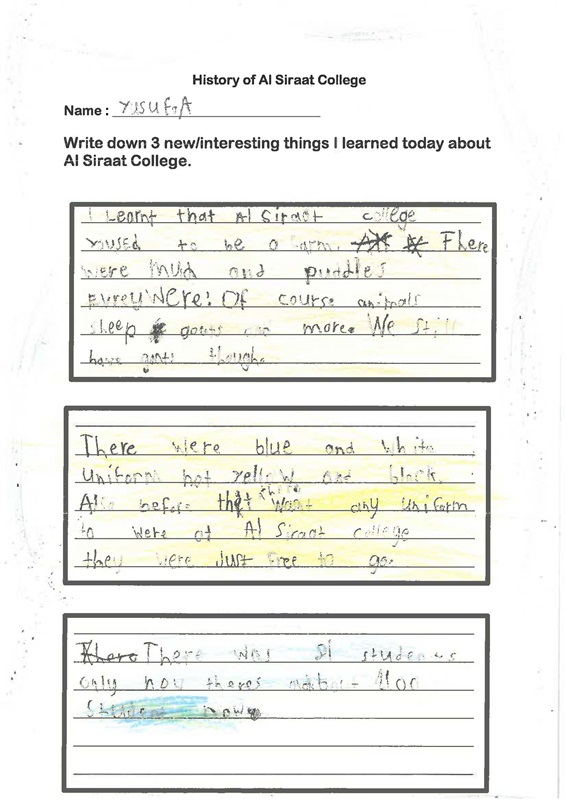 History of Al Siraat College
Name : YUSUF.A
Write down 3 new/interesting things I learned today about
Al Siraat College.
I Learnt that Al Siraat college
yoused to be a farm. There
were mud and puddles
Evreywere! Of course animals
sheep goats and more. We still
have goats though.
There were blue and white
uniform not yellow and black.
Also before that there wasnt any uniform
to were at Al Siraat college
they were just free to go.
There was 81 students
only now theres about 1100
student now